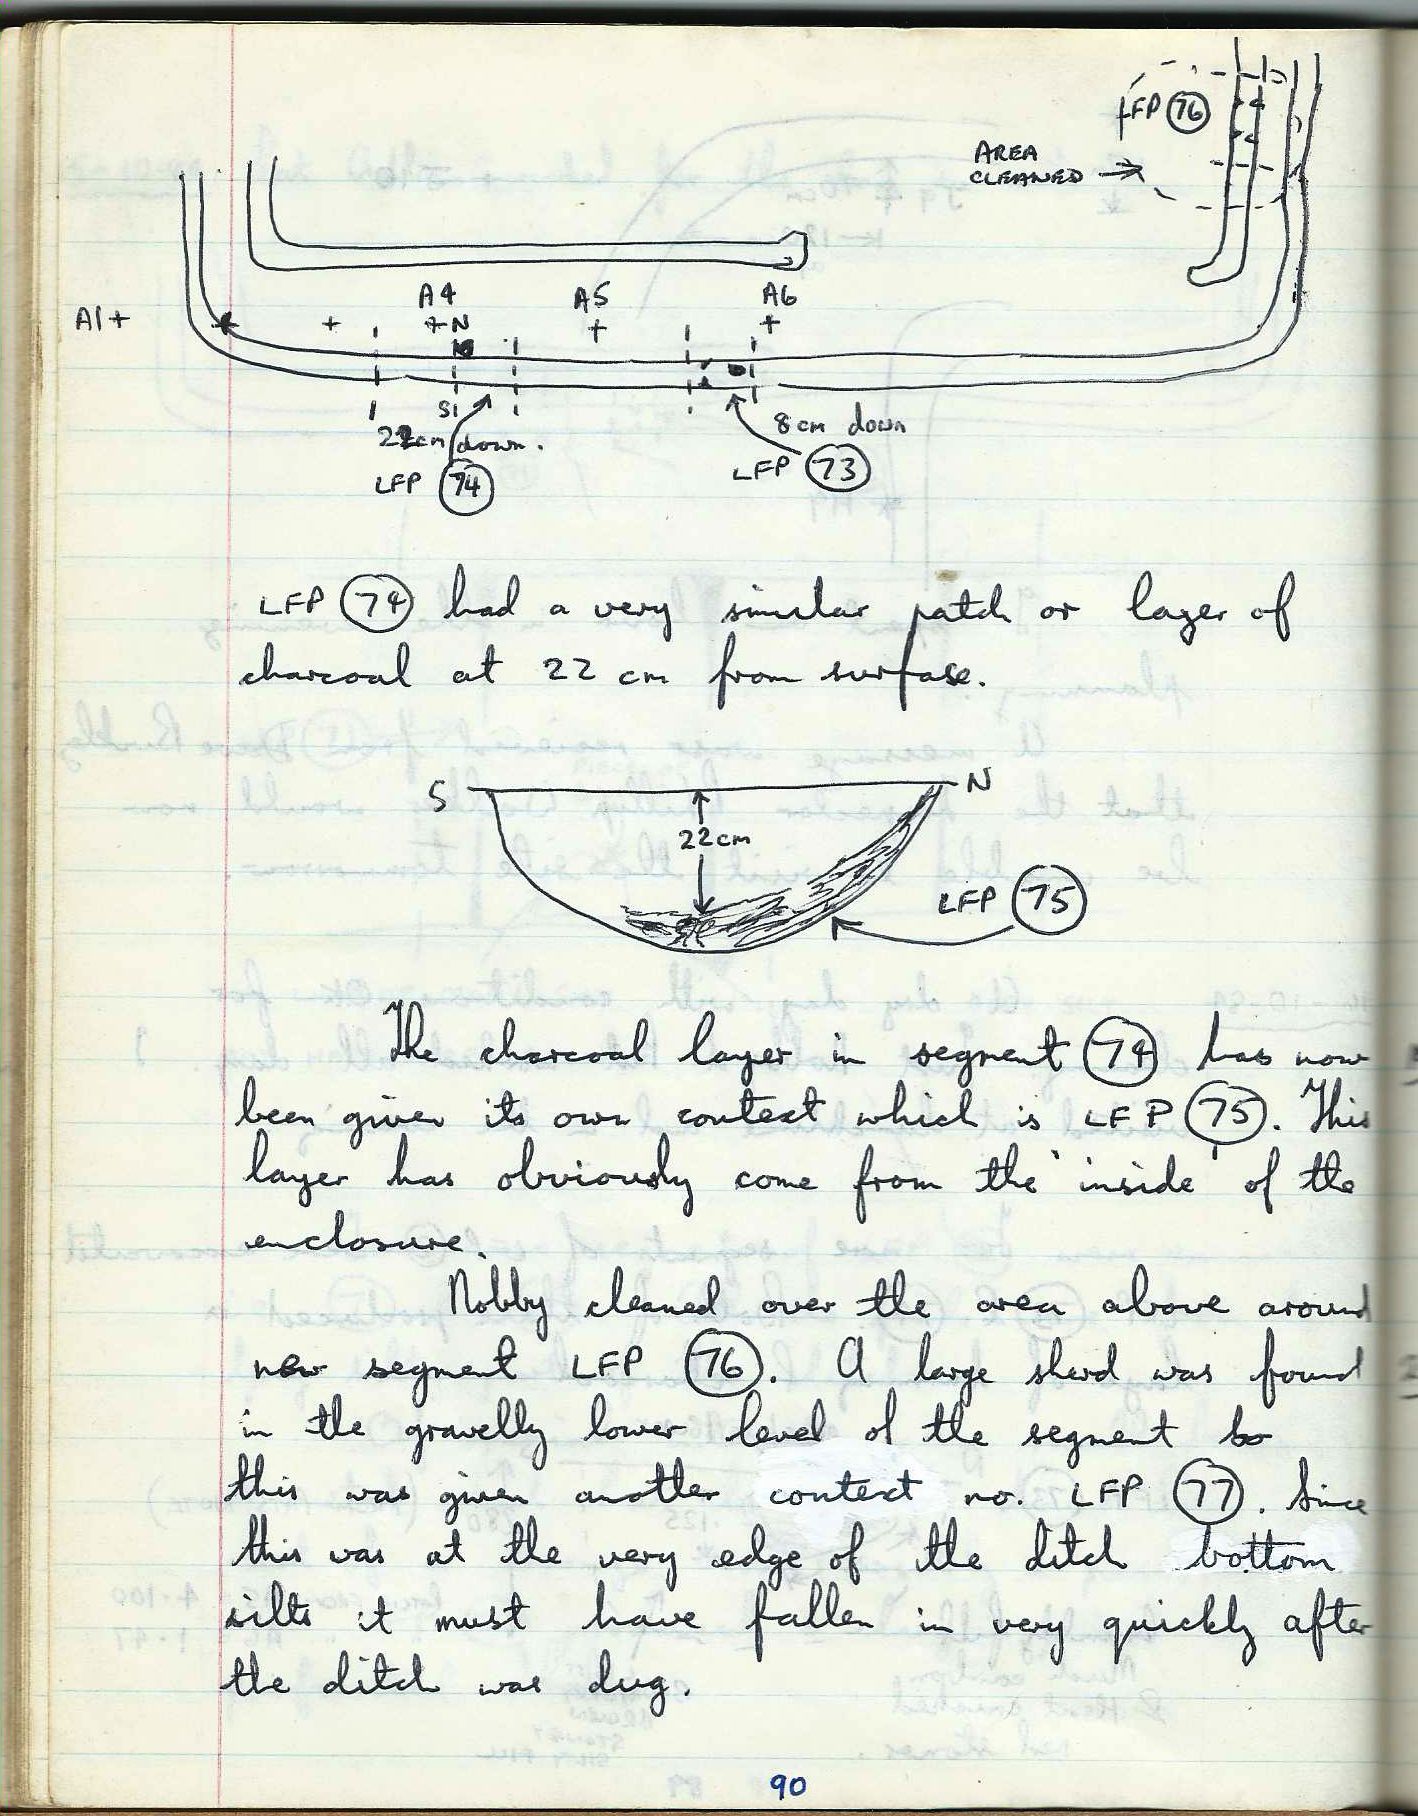 LFP 76
AREA
CLEANED
A1 +
A4
+ N
A5
+
A6
+
+
S
22cm down.
LFP 74
8cm down
LFP 73
LFP 74 had a very similar patch or layer of
charcoal at 22 cm from surfase.
S
N
22cm
LFP 75
The charcoal layer in segment 74 has now
been given its own context which is LFP 75. This
layer has obviously come from the 'inside' of the
enclosure.
Nobby cleaned over the area above around
new segment LFP 76. A large sherd was found
in the gravelly lower level of the segment so
this was given another context no. LFP 77. Since
this was at the very edge of the ditch bottom
silts it must have fallen in very quickly after
the ditch was dug.
90